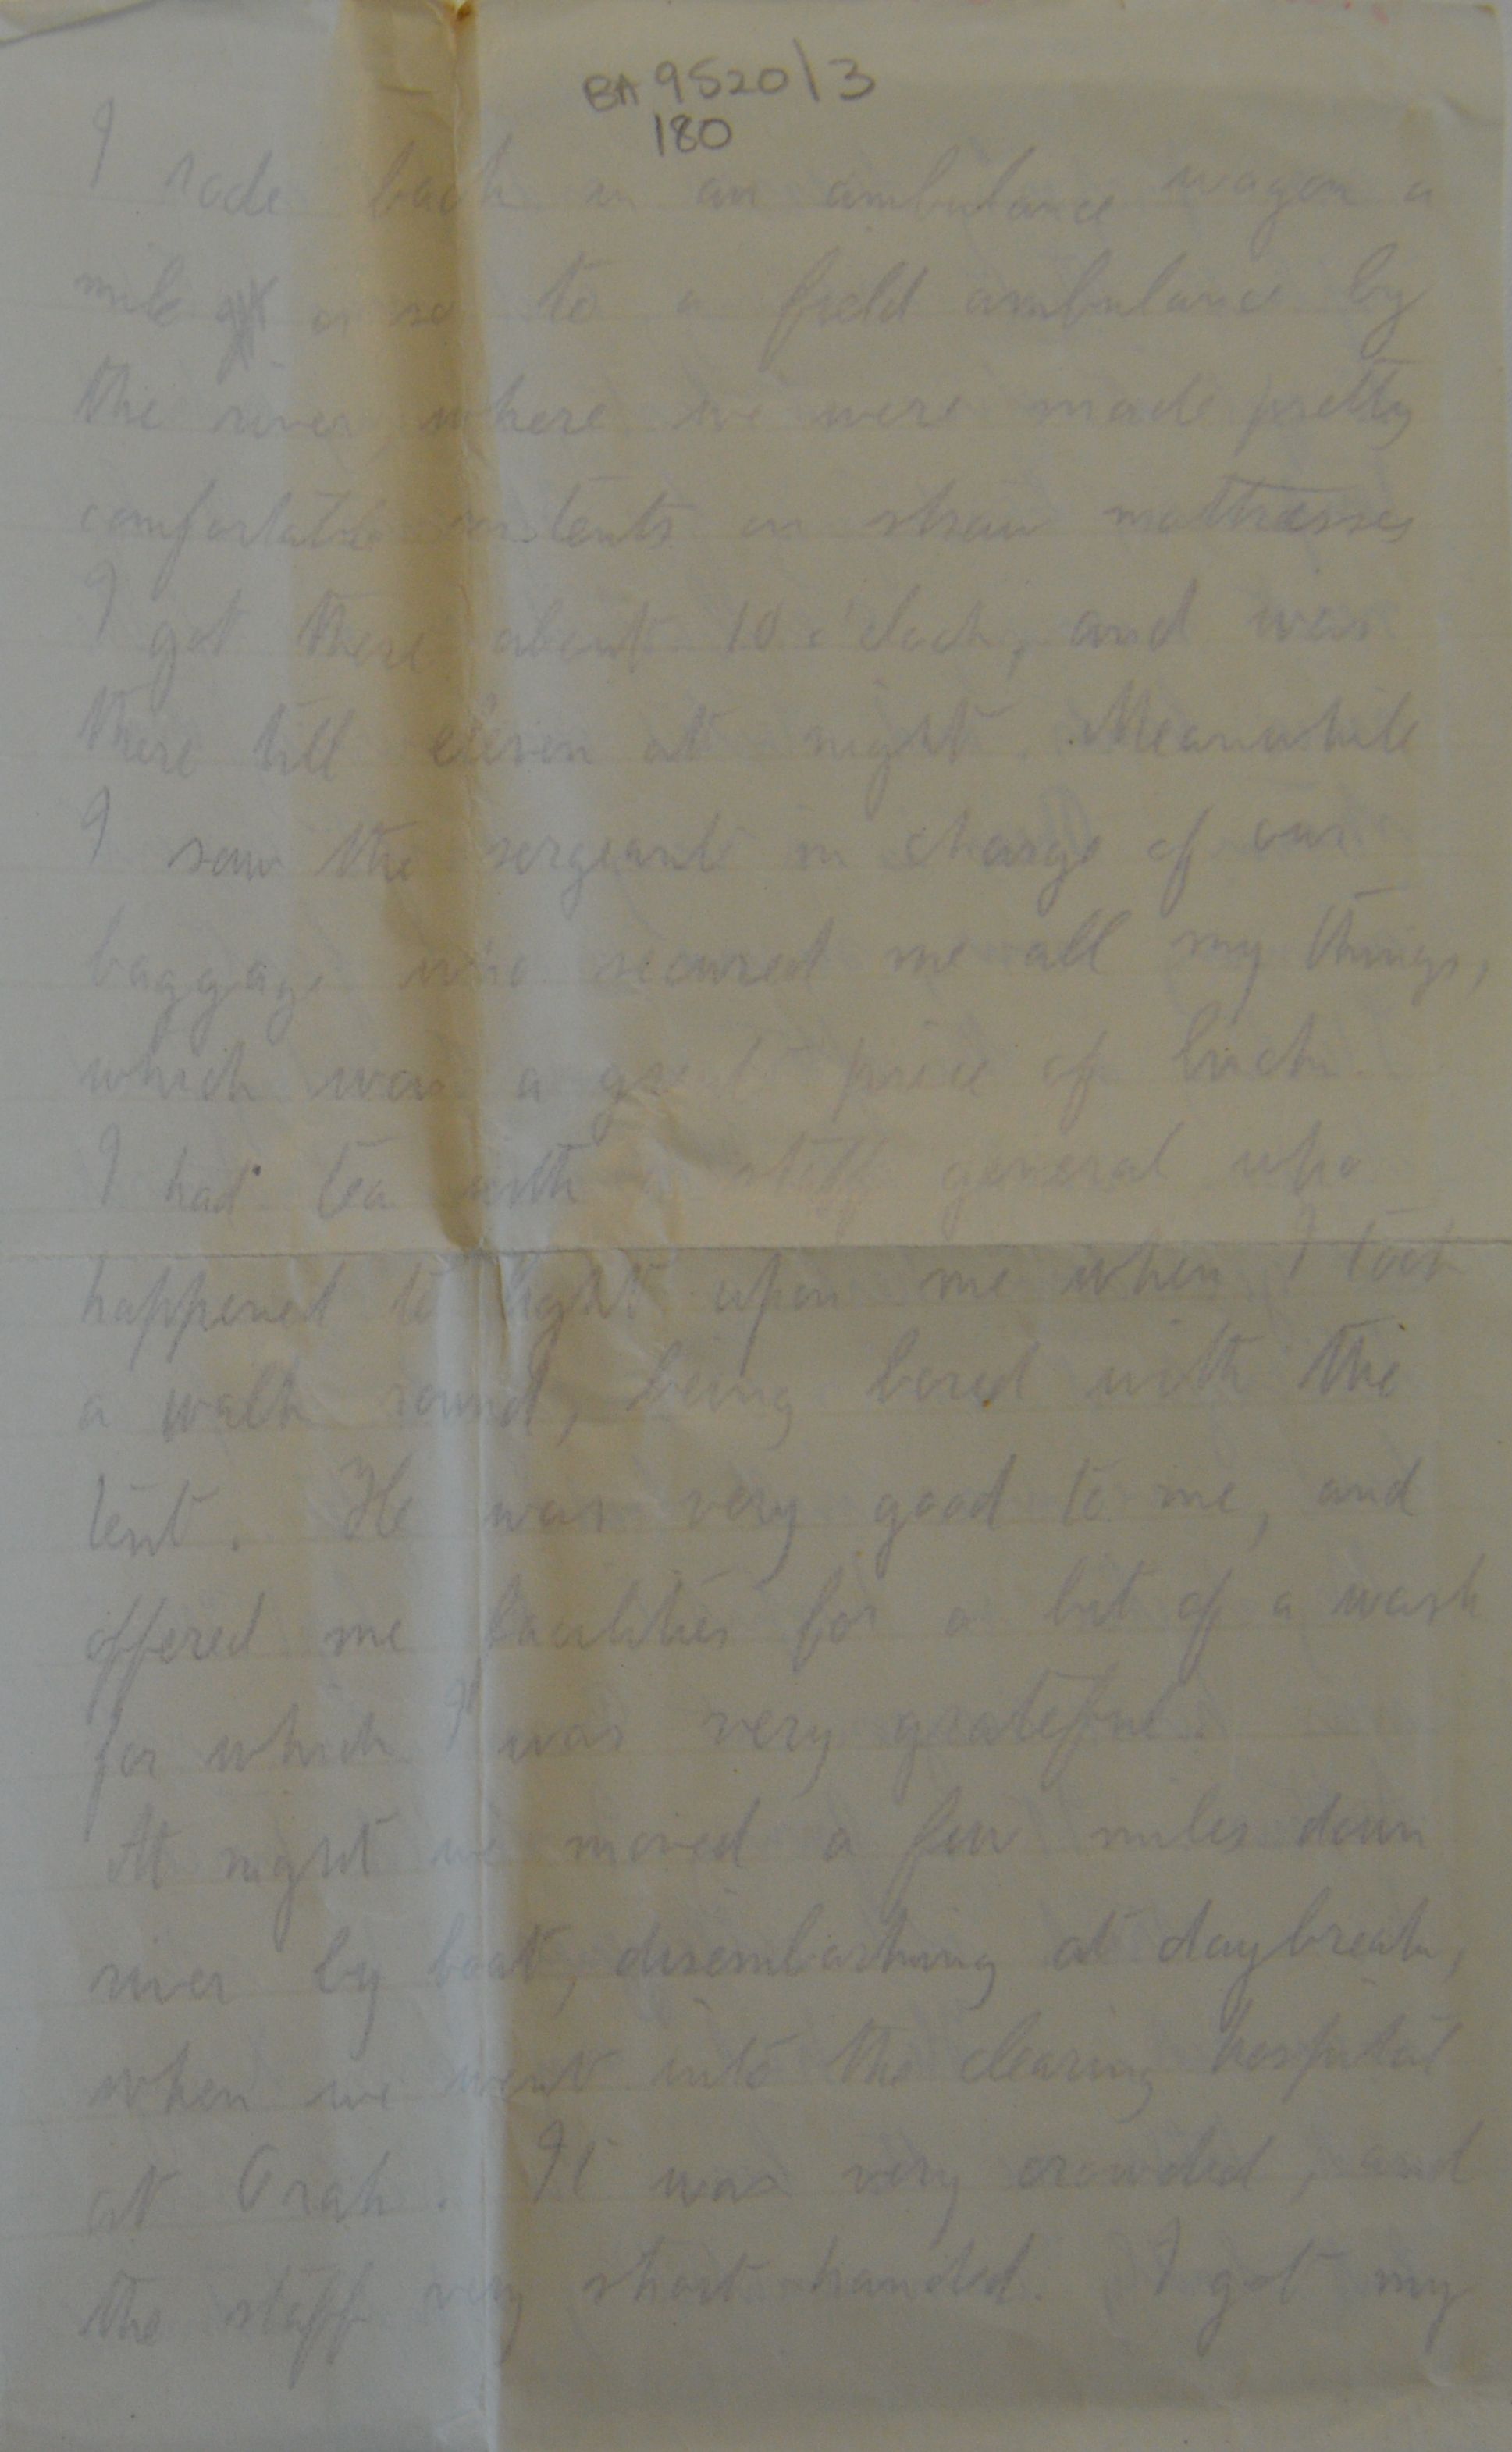 BA 9520/3
180
I rode back in an ambulance wagon a
mile or so to a field ambulance by
the river, where we were made pretty
comfortable in tents on straw mattresses
I got there about 10 o'clock, and was
there till eleven at night. Meanwhile
I saw the sergeant in charge of our
baggage who secured me all my things,
which was a great piece of luck.
I had tea with a staff general who
happened to light upon me when I took
a walk round, being bored with the
tent. He was very good to me, and
offered me facilities for a bit of a wash
for which I was very grateful.
At night we moved a few miles down
river by boat, disembarking at daybreak,
when we went into the clearing hospital
at Orah. It was very crowded, and
the staff very short-handed. I got my